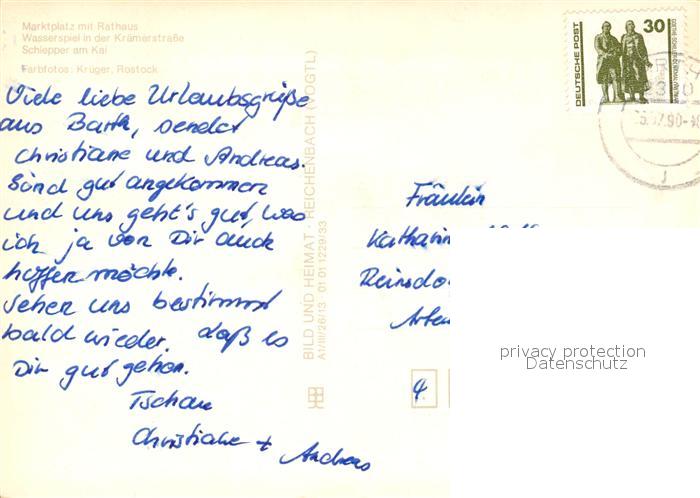 Marktplatz mit Rathaus
Wasserspiel in der Krämerstraße
Schlepper am Kai
Farbfotos: Krüger, Rostock
Viele liebe Urlaubsgrüße
aus Barth, sendet
Christiane und Andreas.
Sind gut angekommen
und uns geht's gut, was
ich ja von Dir auch
hoffen möchte.
Sehen uns bestimmt
bald wieder. Laß es
Dir gut gehen.
Tschau
Christiane +
Andreas
BILD UND HEIMAT · REICHENBACH (VOGTL)
A1/III/26/13 01 01 1229/33
DEUTSCHE POST
30
Fräulein
privacy protection
Datenschutz
4